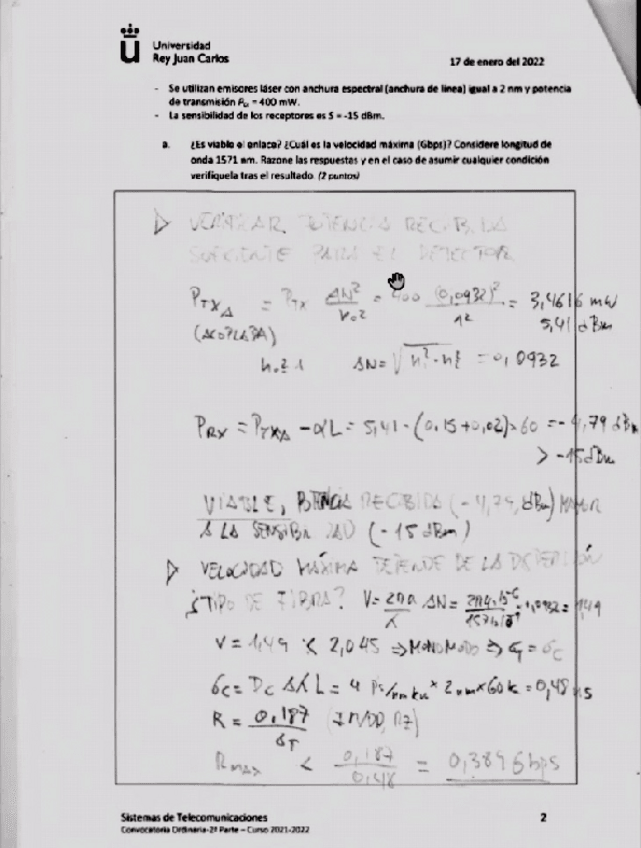 Universidad
Rey Juan Carlos
17 de enero del 2022
- Se utilizan emisores láser con anchura espectral (anchura de línea) igual a 2 nm y potencia
de transmisión Ptx = 400 mW.
- La sensibilidad de los receptores es S = -15 dBm.
a. ¿Es viable el enlace? ¿Cuál es la velocidad máxima (Gbps)? Considere longitud de
onda 1571 nm. Razone las respuestas y en el caso de asumir cualquier condición
verifíquela tras el resultado. (2 puntos)
▷ VERIFICAR POTENCIA RECIBIDA
SUFICIENTE PARA EL DETECTOR
PTXA = PTX ΔN²/n₀² = 400 (0,0932)²/1² = 3,4616 mW
5,41 dBm
(ACOPLADA)
ΔN = √ = 0,0932
PRX = PTXA - αL = 5,41 - (0.15+0,02)×60 = -4,79 dBm
> -15 dBm
VIABLE, POTENCIA RECIBIDA (-4,79 dBm) MAYOR
A LA SENSIBILIDAD (-15 dBm)
▷ VELOCIDAD MÁXIMA DEPENDE DE LA DISPERSIÓN
¿TIPO DE FIBRA? V = 2πa/λ ΔN =
V = 1,49 < 2,045 ⇒ MONOMODO ⇒ = σC
σC = DC Δλ L = 4 ps/nm km × 2 nm × 60 k = 0,48 ns
R = 0,187/σT
RMAX < 0,187/0,48 = 0,389 Gbps
Sistemas de Telecomunicaciones
2
Convocatoria Ordinaria-2ª Parte – Curso 2021-2022